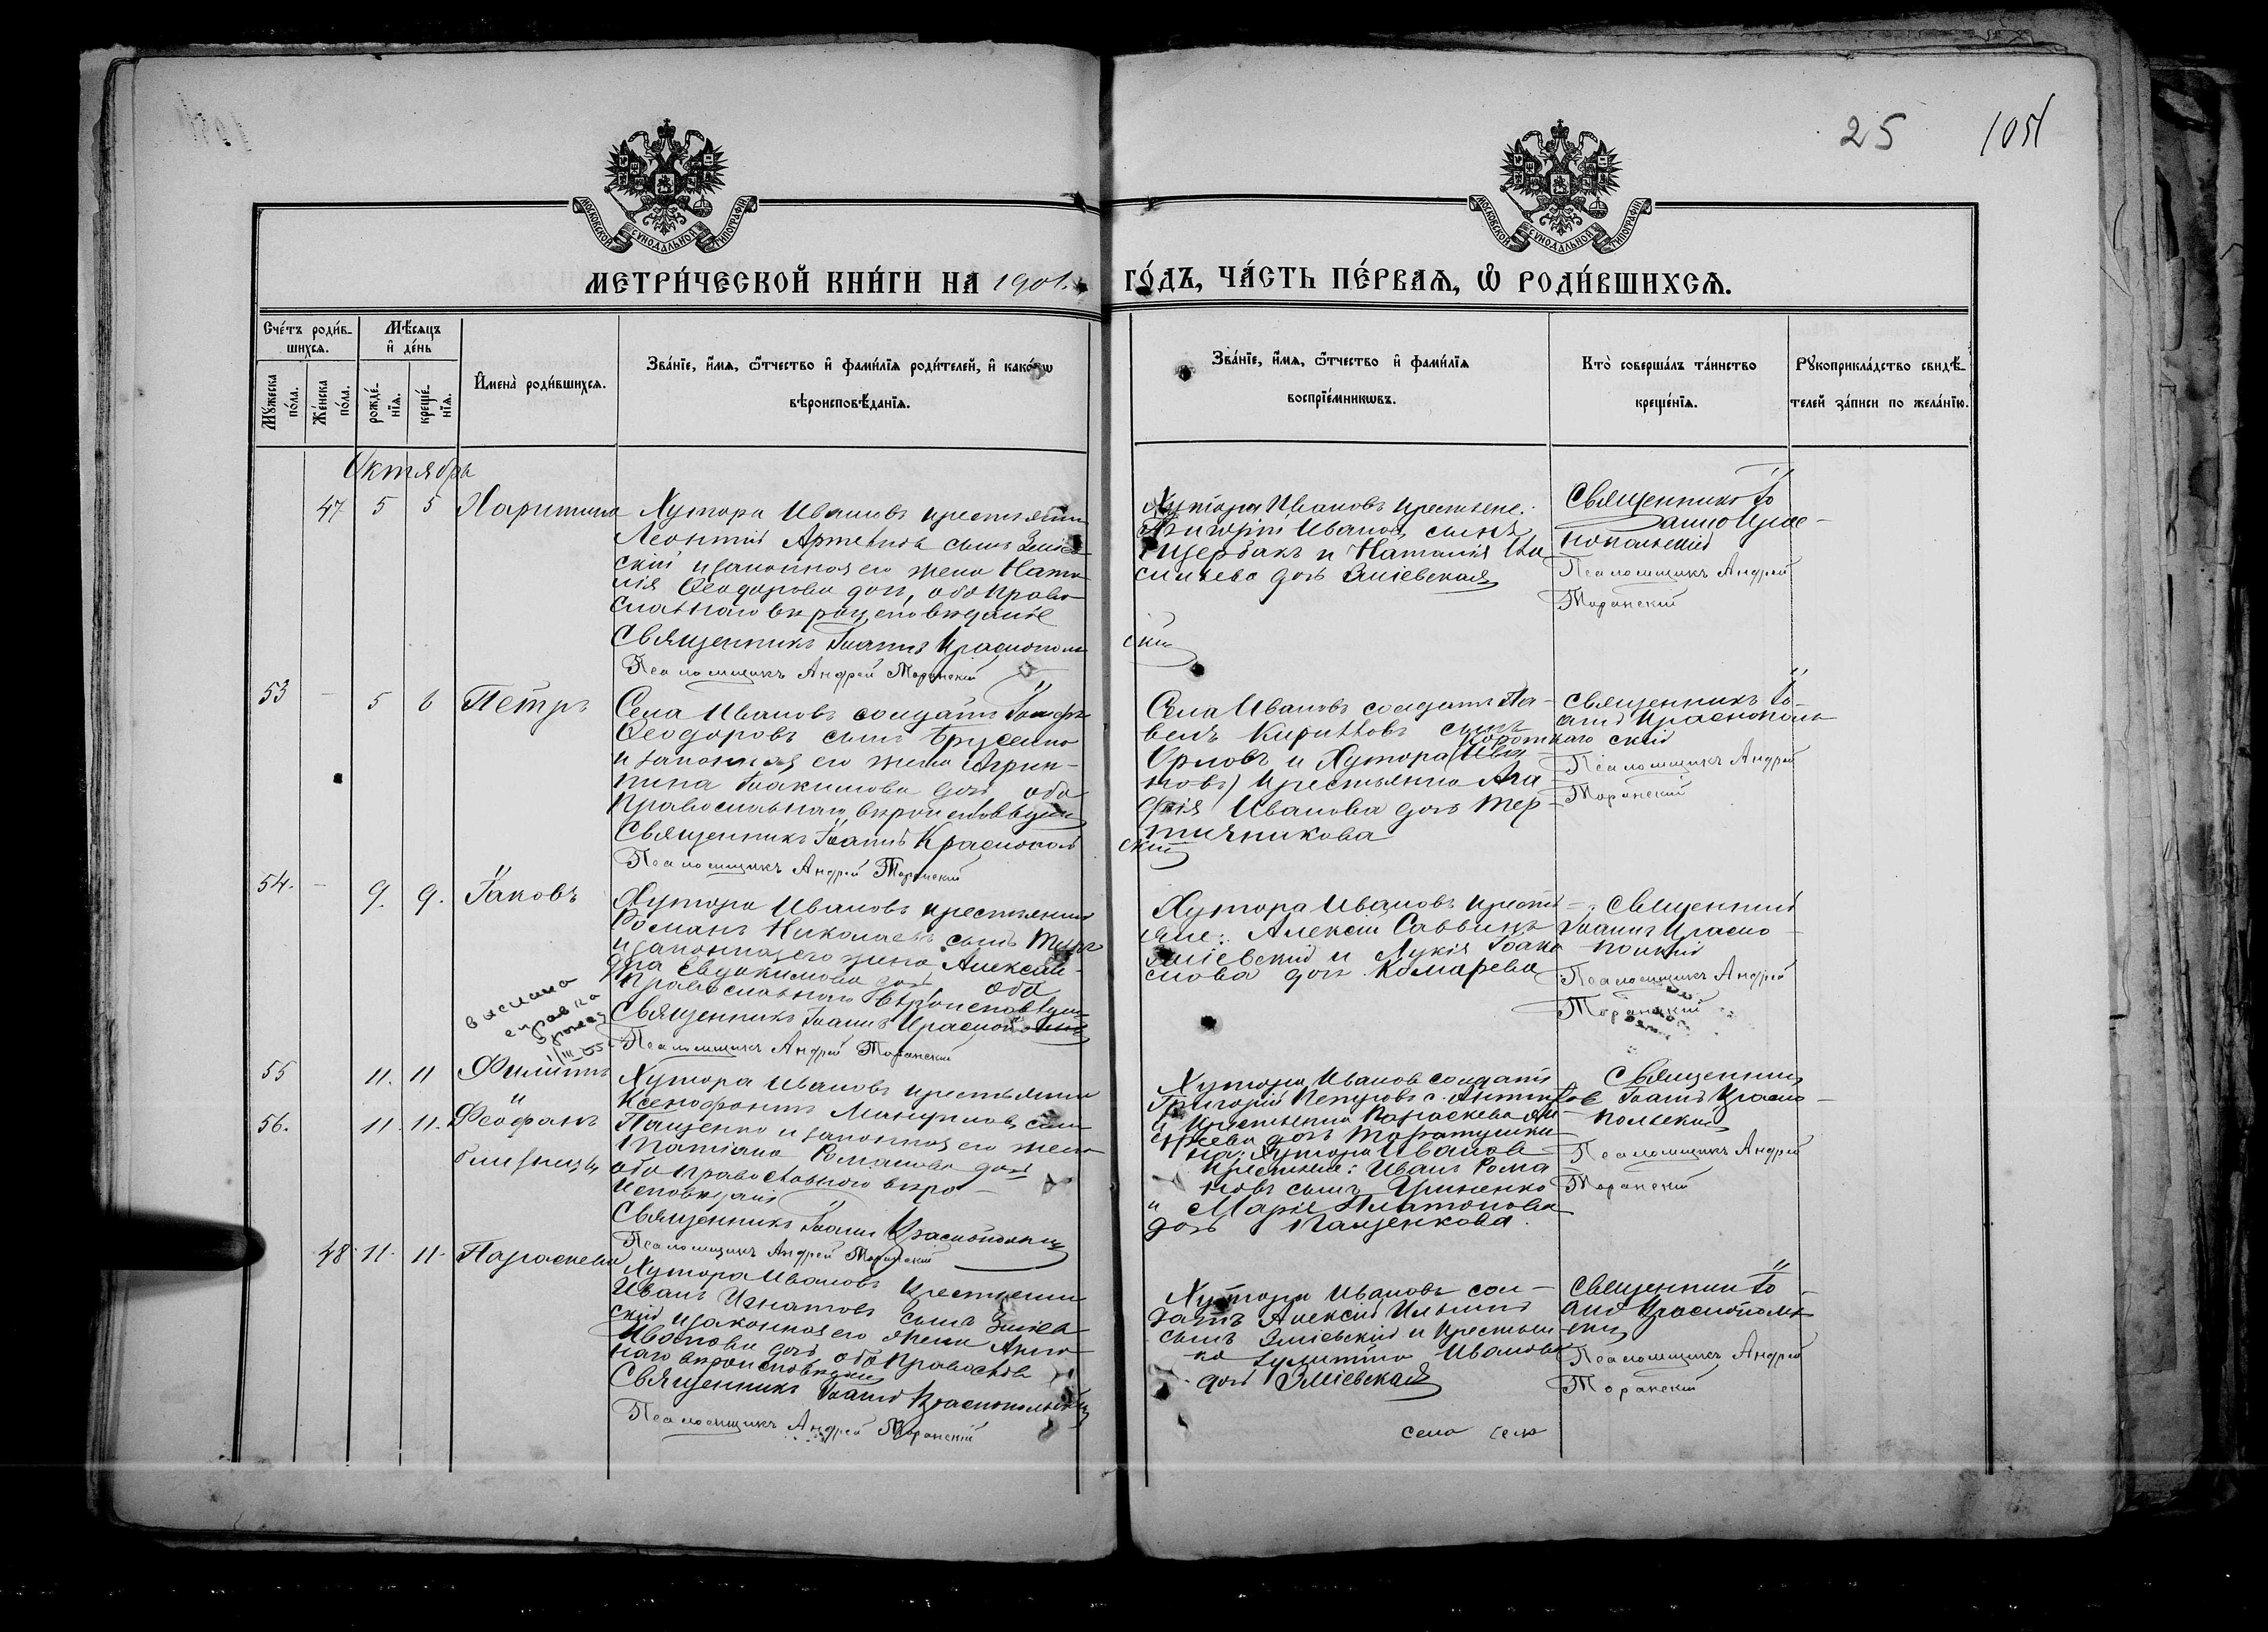 25 105
МОСКОВСКОЙ СѴНОДАЛЬНОЙ ТИПОГРАФІИ
МОСКОВСКОЙ СѴНОДАЛЬНОЙ ТИПОГРАФІИ
МЕТРИ́ЧЕСКОЙ КНИ́ГИ НА 1901. ГО́ДЪ, ЧА́СТЬ ПЕ́РВАѦ, Ѡ РОДИ́ВШИХСѦ.
Сче́тъ роди́в-
шихсѧ.
Мѣ́сѧцъ
и҆ де́нь
Мꙋ́жеска
по́ла.
Же́нска
по́ла.
рожде́-
нїѧ.
креще́-
нїѧ.
И҆мена̀ роди́вшихсѧ.
Зва́нїе, и҆́мѧ, ѻ҆́тчество и҆ фами́лїѧ роди́телей, и҆ како́гѡ
вѣроисповѣ́данїѧ.
Зва́нїе, и҆́мѧ, ѻ҆́тчество и҆ фами́лїѧ
воспрїе́мникѡвъ.
Кто̀ соверша́лъ та́инство
креще́нїѧ.
Рꙋкоприкла́дство свидѣ́-
телей за́писи по жела́нїю.
Октябрь
47 5 5 Харитина
Хутора Ивановъ крестьянинъ
Леонтій Артемовъ сынъ Зміев
скій и законная его жена Ната
лія Ѳеодорова дочь, оба право
славнаго вѣроисповѣданіе
Священникъ Іоаннъ Краснополь
Псаломщикъ Андрей Торанскій
Хутора Ивановъ крестьяне:
Григорій Ивановъ сынъ
Щербакъ и Наталія Ва
сильева дочь Зміевская
скій
Священникъ Іо
аннъ Крас-
нопольскій
Псаломщикъ Андрей
Торанскій
53 — 5 6 Петръ
Села Ивановъ солдатъ
Ѳеодоровъ сынъ Брусенко
и законная его жена Агрип-
пина Іоакимова дочь оба
Православнаго вѣроисповѣдан
Священникъ Іоаннъ Краснополь
Псаломщикъ Андрей Торанскій
Села Ивановъ солдатъ Па-
велъ Кирилловъ сынъ
Орловъ и Хутора Короткаго (Ива
новъ) крестьянка Ага
фія Ивановна дочь Тер
тичникова
скій
Священникъ Іо-
аннъ Краснополь
скій
Псаломщикъ Андрей
Торанскій
54. — 9. 9. Іаковъ
Хутора Ивановъ крестьянинъ
Романъ Николаевъ сынъ
и законная его жена Алексан-
дра Евдокимова дочь оба
Православнаго вѣроисповѣдан
Священникъ Іоаннъ Краснопольскій
Псаломщикъ Андрей Торанскій
выслана
справка
Хутора Ивановъ кресть-
яне: Алексій Саввинъ
Зміевскій и Лукія Іоаки
мова дочь Комарева
Священникъ
Іоаннъ Красно-
польскій
Псаломщикъ Андрей
Торанскій
55 11. 11 Филиппъ
56. 11. 11. Ѳеофанъ
близнецы
Хутора Ивановъ крестьянинъ
Ксенофонтъ Мануиловъ сынъ
Пащенко и законная его жена
Татіана Романова дочь
оба православнаго вѣро-
исповѣданія
Священникъ Іоаннъ Краснопольскій
Псаломщикъ Андрей Торанскій
Хутора Ивановъ солдатъ
Григорій Петровъ с. Антипов
и крестьянка Параскева
дочь
на: Хутора Ивановъ
крестьяне: Иванъ Рома
новъ сынъ Гриненко
и Марія Платонова
дочь Пащенкова.
Священникъ
Іоаннъ Красно-
польскій
Псаломщикъ Андрей
Торанскій
48 11. 11. Параскева
Хутора Ивановъ крестьянинъ
Иванъ Игнатовъ сынъ Зміев
скій и законная его жена Анна
Иванова дочь оба Правослов
наго вѣроисповѣдан
Священникъ Іоаннъ Краснопольскій
Псаломщикъ Андрей Торанскій
Хутора Ивановъ сол-
датъ Алексій Ильинъ
сынъ Зміевскій и крестьян
ка Іулитта Иванова
дочь Зміевская
село село
Священникъ Іо-
аннъ Краснополь
скій
Псаломщикъ Андрей
Торанскій